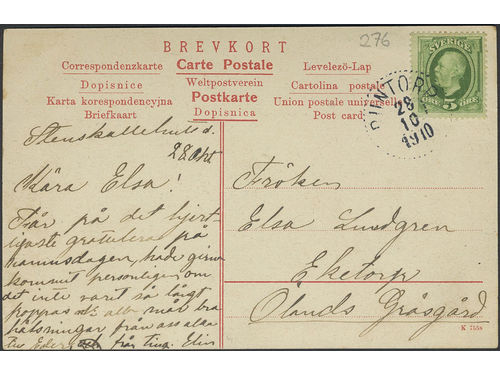 276
BREVKORT
Correspondenzkarte Carte Postale Levelező-Lap
Dopisnice Weltpostverein Cartolina postale
Karta korespondencyjna Postkarte Union postale universelle
Briefkaart Dopisnica Post card
SVERIGE
ÖRE 5 ÖRE
RUNTORP
28
10
1910
28 Okt
Kära Elsa!
Får på det hjert-
ligaste gratulera på
namnsdagen, hade gerna
kommit personligen om
det inte varit så långt
hoppas att allt mår bra
hälsningar från oss alla
Elin
Fröken
Elsa Lundgren
Eketorp
Ölands Gräsgård
K 7558